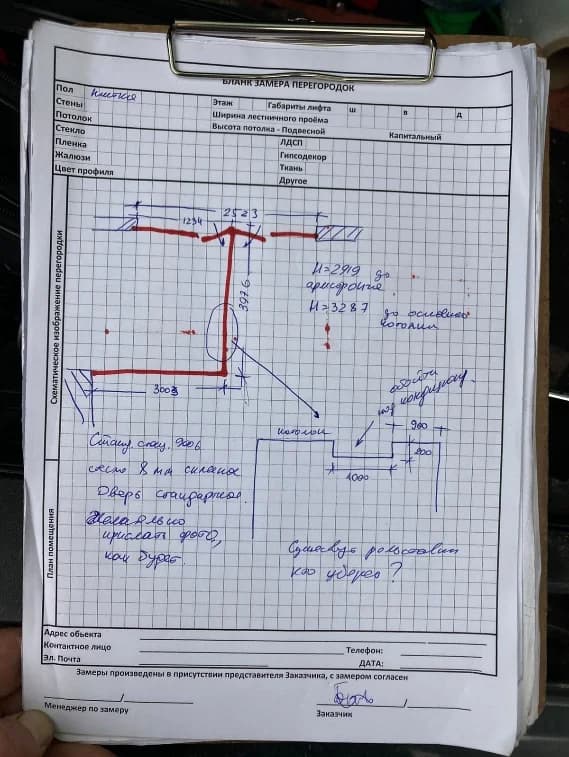 БЛАНК ЗАМЕРА ПЕРЕГОРОДОК
Пол плитка
Стены Этаж Габариты лифта ш в д
Потолок Ширина лестничного проёма
Стекло Высота потолка - Подвесной Капитальный
Пленка ЛДСП
Жалюзи Гипсодекор
Цвет профиля Ткань
Другое
Схематическое изображение перегородки
2523
1234
3976
3003
H=2919 до
H=3287 до основного
потолка
обойти
900
200
1000
потолок
стекло 8 мм
Дверь стандартное.
Желательно
прислать фото,
как будет.
Существует рольставни
кто уберет?
План помещения
Адрес обьекта
Контактное лицо Телефон:
Эл. Почта ДАТА:
Замеры произведены в присутствии представителя Заказчика, с замером согласен
Менеджер по замеру Заказчик